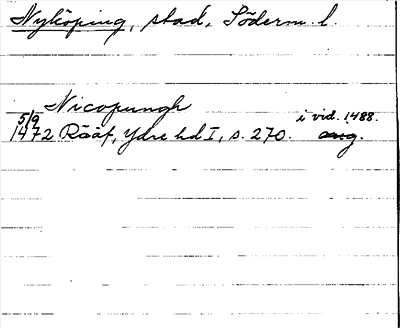 Nyköping, stad, Söderm. l.
Nicopungh
5/9 i vid. 1488.
1472 Rääf, Ydre hd I, s. 270. orig.